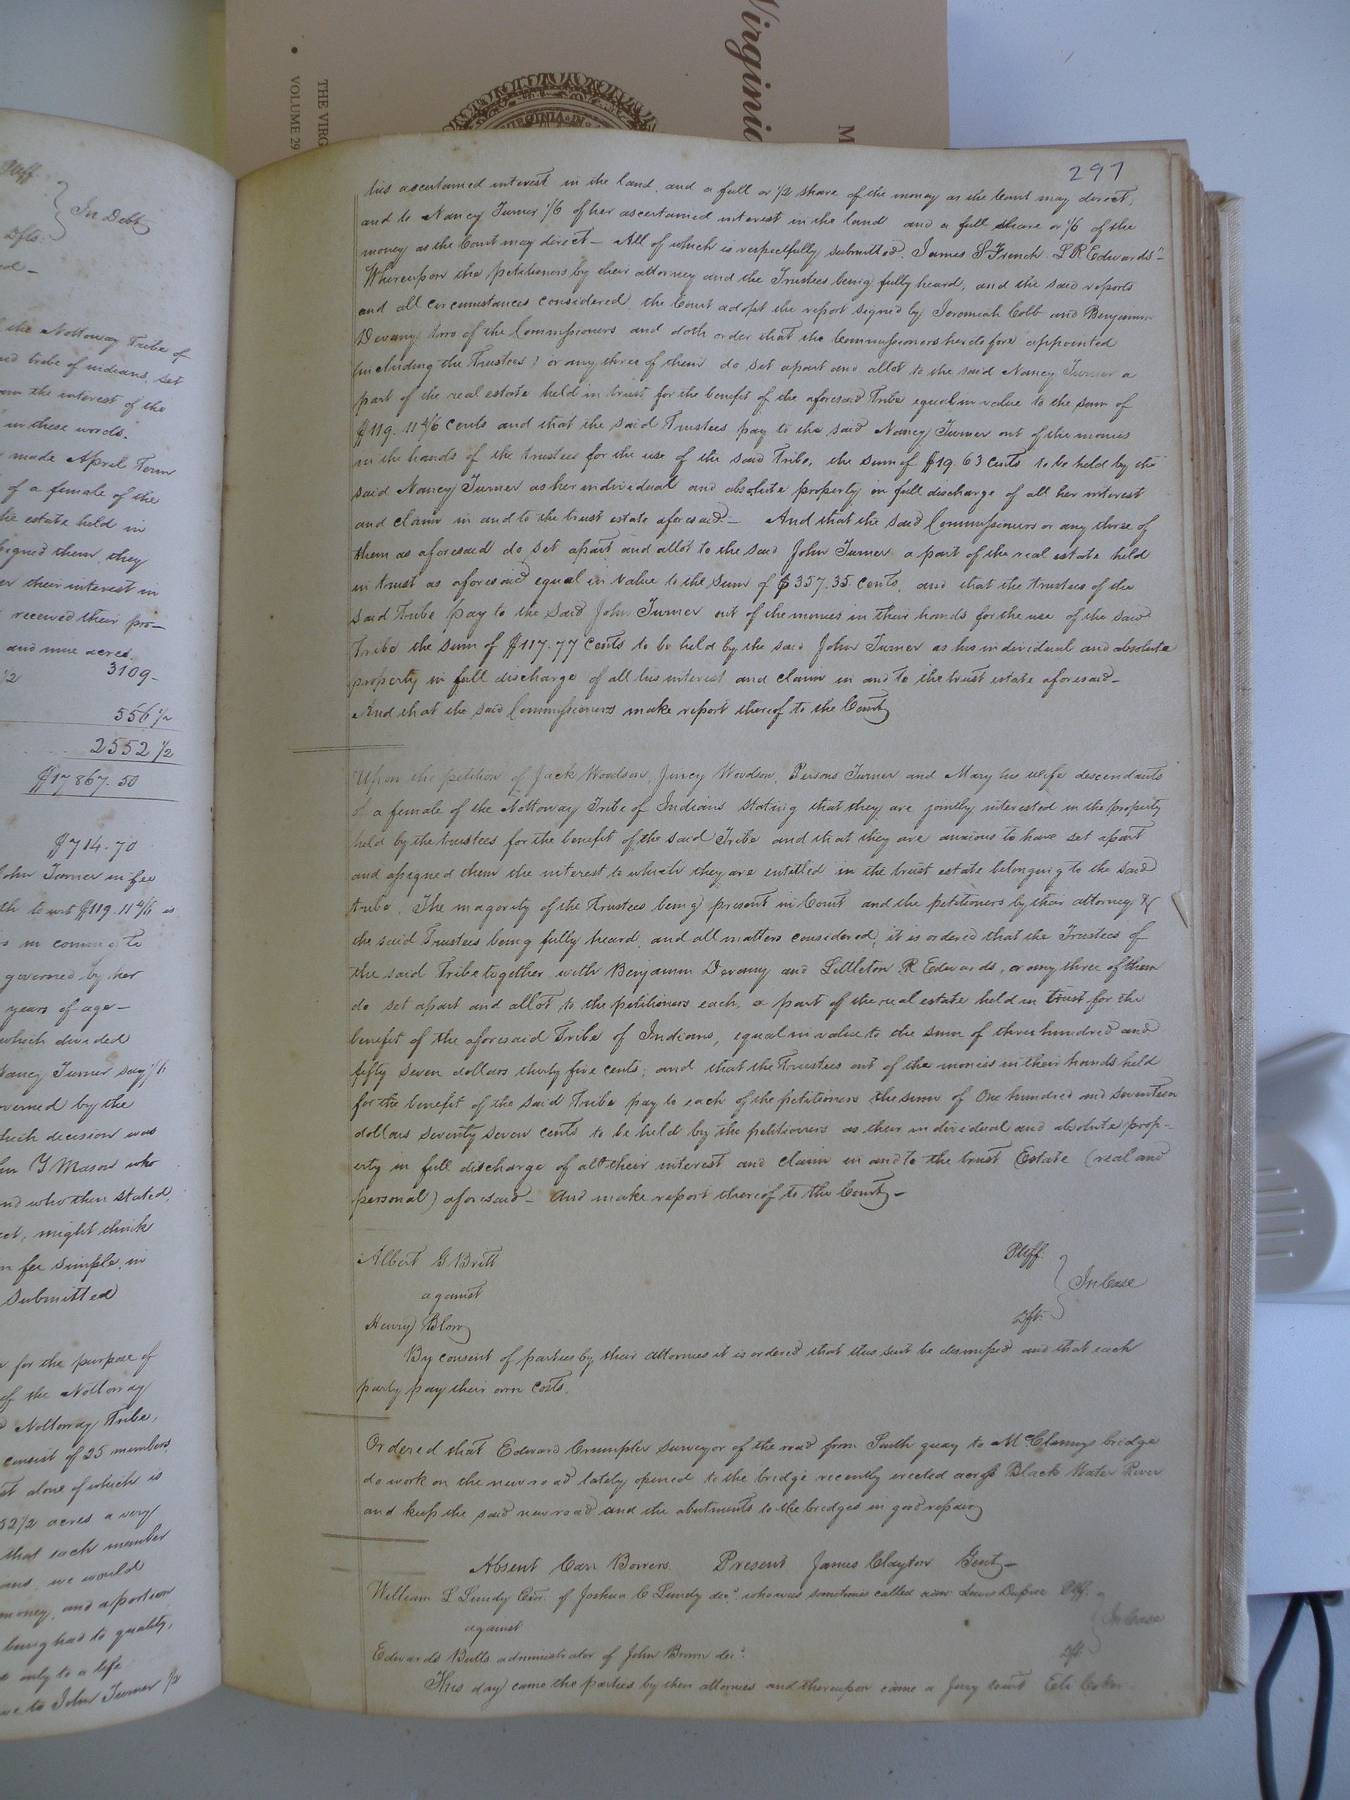 Virginia
THE VIRG
VOLUME 29
M
VIRGINIA
297
his ascertained interest in the land, and a full or 1/2 share of the money as the Court may direct,
and to Nancy Turner 1/6 of her ascertained interest in the land and a full share or 1/6 of the
money as the Court may direct - All of which is respectfully submitted. James S French L R Edwards"-
Whereupon the petitioners by their attorney and the Trustees being fully heard, and the said reports
and all circumstances considered the Court adopt the report signed by Jeremiah Cobb and Benjamin
Devany two of the Commissioners and doth order that the commissioners heretofore appointed
(including the Trustees) or any three of them do set apart and allot to the said Nancy Turner a
part of the real estate held in trust for the benefit of the aforesaid Tribe equal in value to the sum of
$119. 11 4/6 cents and that the said Trustees pay to the said Nancy Turner out of the monies
in the hands of the trustees for the use of the said Tribe, the sum of $19 63 cents to be held by the
said Nancy Turner as her individual and absolute property in full discharge of all her interest
and claim in and to the trust estate aforesaid - And that the said Commissioners or any three of
them as aforesaid do set apart and allot to the said John Turner a part of the real estate held
in trust as aforesaid equal in value to the sum of $357.35 cents, and that the trustees of the
said Tribe pay to the said John Turner out of the monies in their hands for the use of the said
Tribe the sum of $117.77 cents to be held by the said John Turner as his individual and absolute
property in full discharge of all his interest and claim in and to the trust estate aforesaid -
And that the said Commissioners make report thereof to the Court
Upon the petition of Jack Woodson, Jincy Woodson, Persons Turner and Mary his wife descendants
of a female of the Nottoway Tribe of Indians stating that they are jointly interested in the property
held by the trustees for the benefit of the said Tribe and that they are anxious to have set apart
and assigned them the interest to which they are entitled in the trust estate belonging to the said
tribe. The magority of the Trustees being present in Court and the petitioners by their attorney &
the said Trustees being fully heard, and all matters considered, it is ordered that the Trustees of
the said Tribe together with Benjamin Devany and Littleton R Edwards, or any three of them
do set apart and allot to the petitioners each, a part of the real estate held in trust for the
benefit of the aforesaid Tribe of Indians, equal in value to the sum of three hundred and
fifty seven dollars thirty five cents; and that the Trustees out of the monies in their hands held
for the benefit of the said Tribe pay to each of the petitioners the sum of One hundred and seventeen
dollars seventy seven cents to be held by the petitioners as their individual and absolute prop-
erty in full discharge of all their interest and claim in and to the trust Estate (real and
personal) aforesaid - And make report thereof to the Court -
Albert G Britt Plff.
against
In Case
Henry Blow Dft.
By consent of parties by their attornies it is ordered that this suit be dismissed and that each
party pay their own costs.
Ordered that Edward Crumpler surveyor of the road from South quay to McClennys bridge
do work on the new road lately opened to the bridge recently erected across Black Water River
and keep the said new road and the abutments to the bridges in good repair
Absent Carr Bowers Present James Clayton Gent -
William L Lundy Exr. of Joshua C Lundy decd. who was sometimes called Lewis Dupree Plff.
against
In Case
Edwards Butts administrator of John Brown decd. Dft.
This day came the parties by their attornies and thereupon came a Jury towit Eli
Plff
In Debt
Dfts.
the Nottoway Tribe of
tribe of indians, set
the interest of the
in these words.
made April Term
of a female of the
the estate held in
assigned them, they
their interest in
received their pro-
and nine acres
1/2 3109-
556 1/2
2552 1/2
$17867.50
$714.70
John Turner in fee
to wit $119.11 4/6 is
in coming to
governed by her
years of age -
which divided
Nancy Turner say 1/6
governed by the
which decision was
Y Mason who
and who then stated,
might think
in fee simple, in
submitted
for the purpose of
of the Nottoway
Nottoway Tribe,
consist of 25 members
alone of which is
52 1/2 acres a very
that each member
we would
money, and a portion
being had to quality,
only to a life
to John Turner 1/2